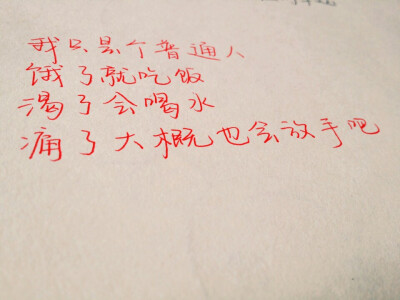 我只是个普通人
饿了就吃饭
渴了会喝水
痛了大概也会放手吧